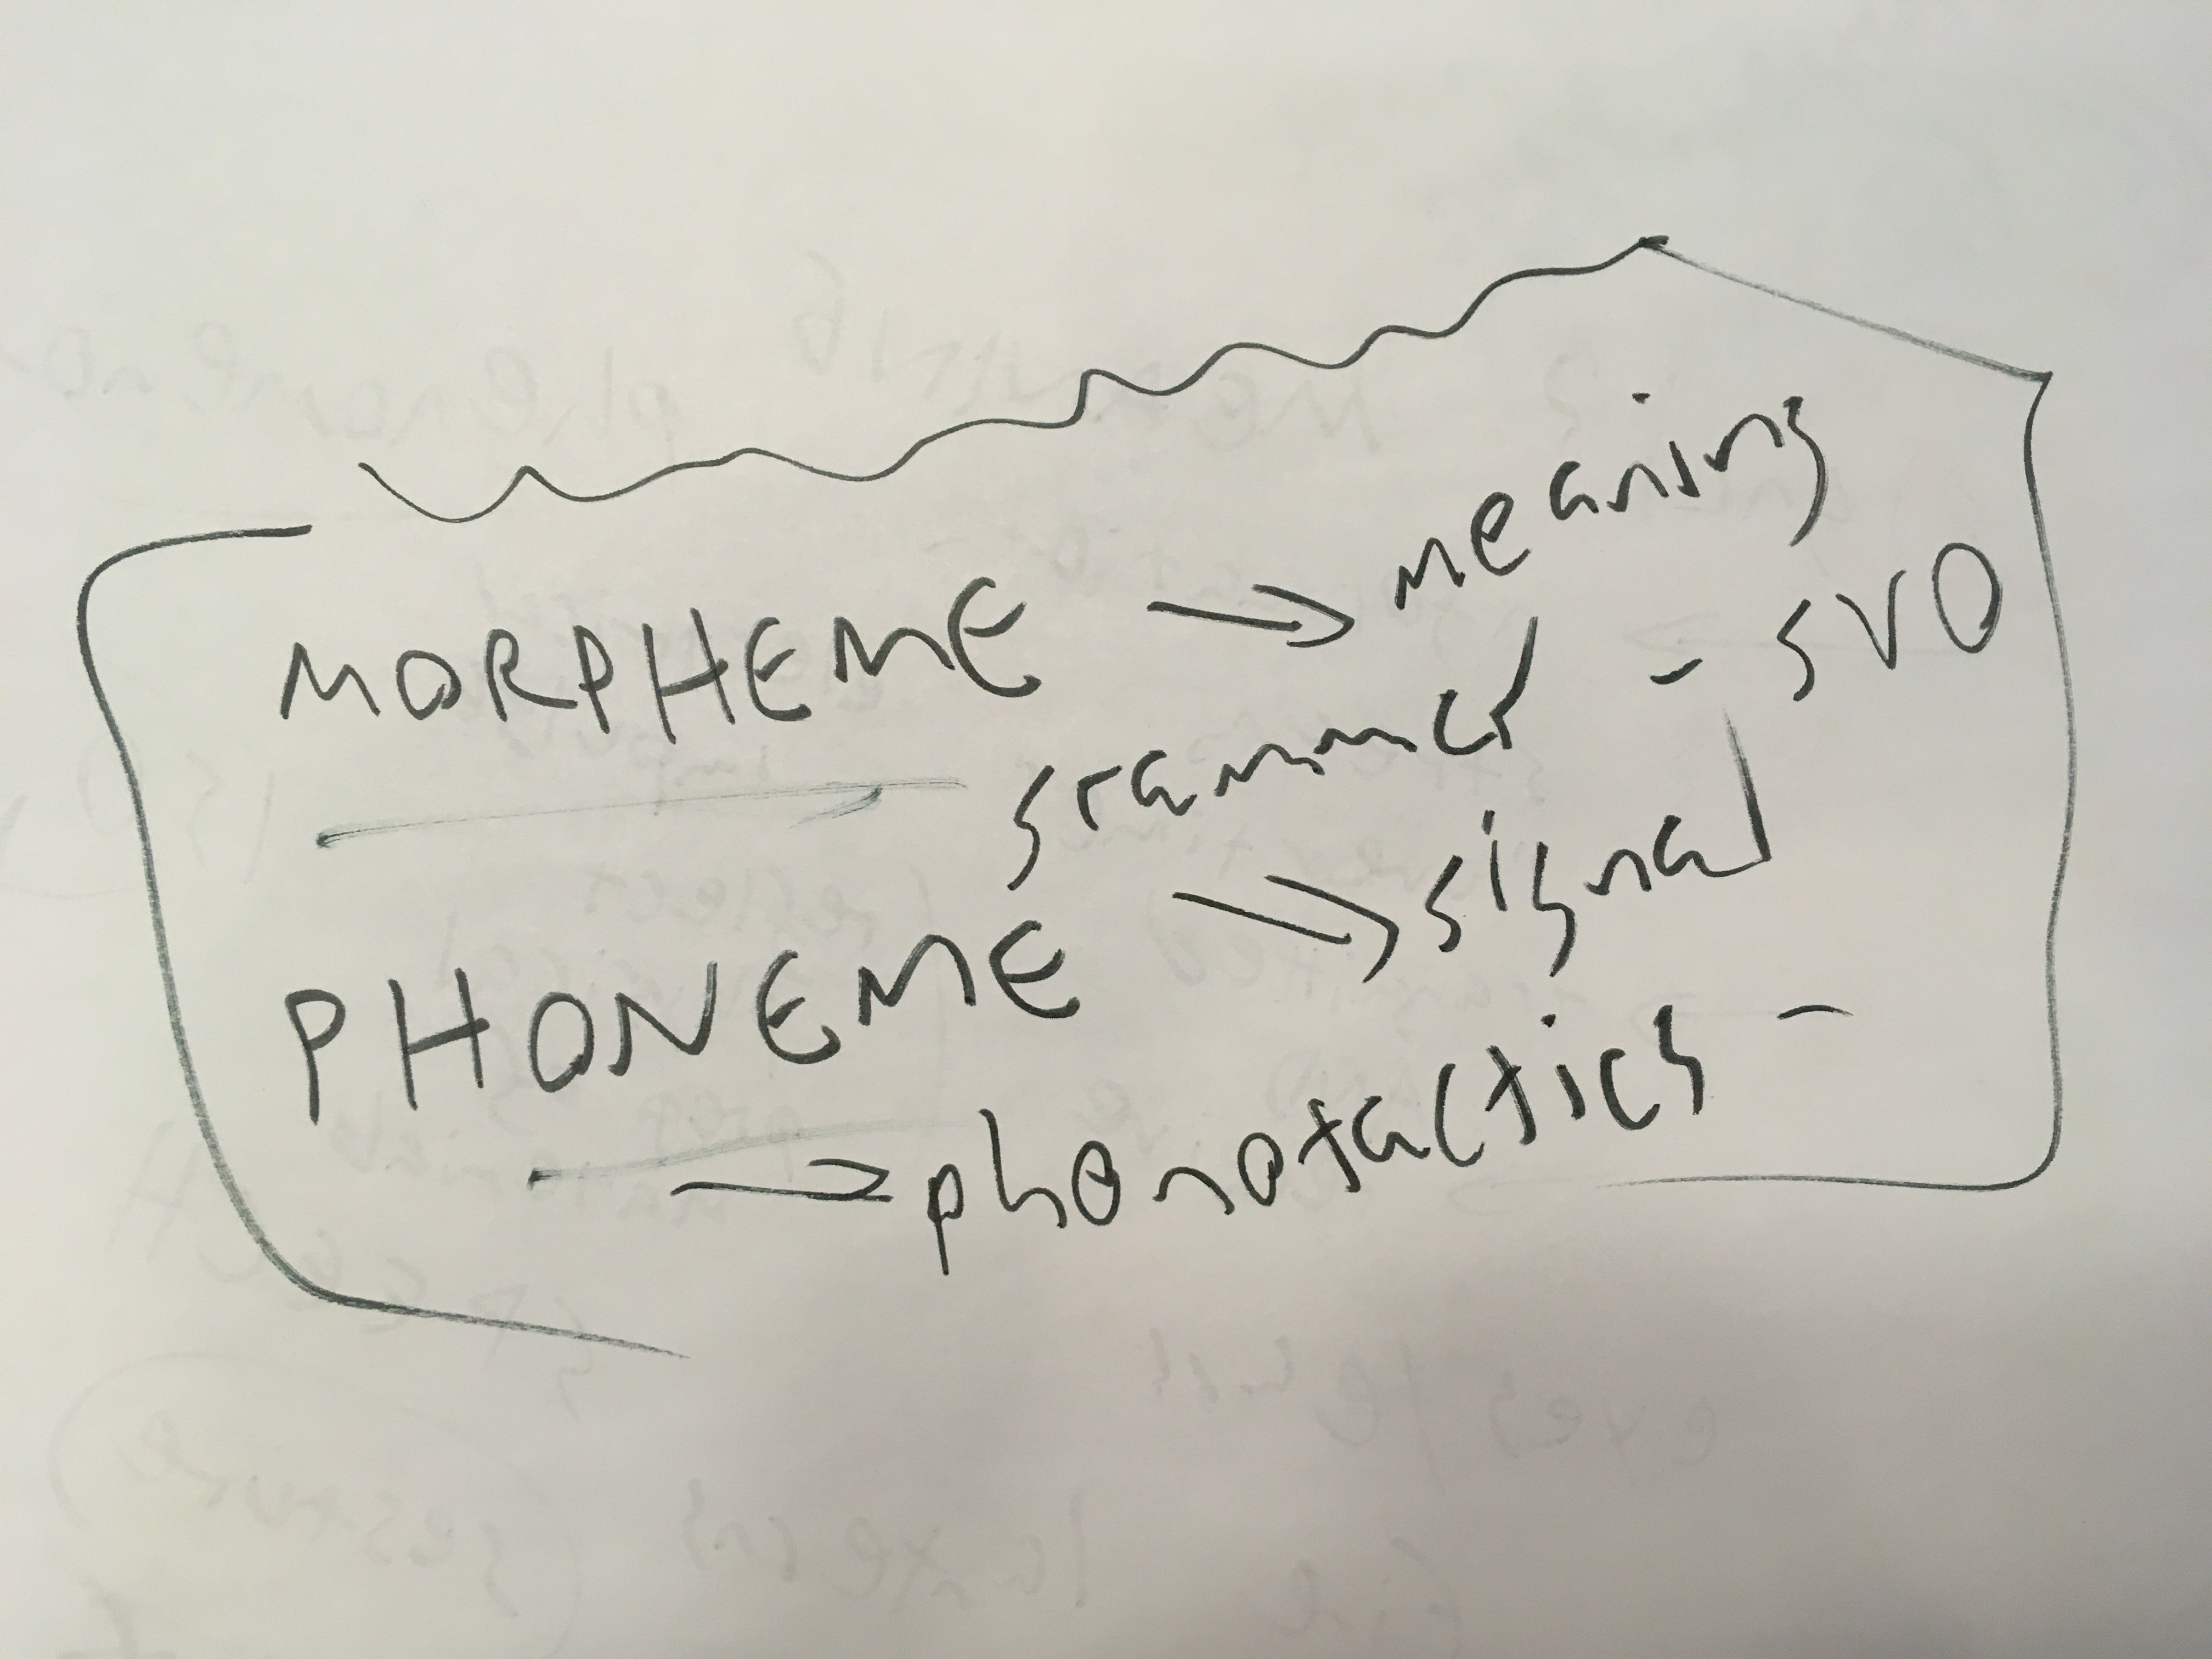 MORPHEME → meaning
grammar - SVO
PHONEME → signal
→ phonotactics -